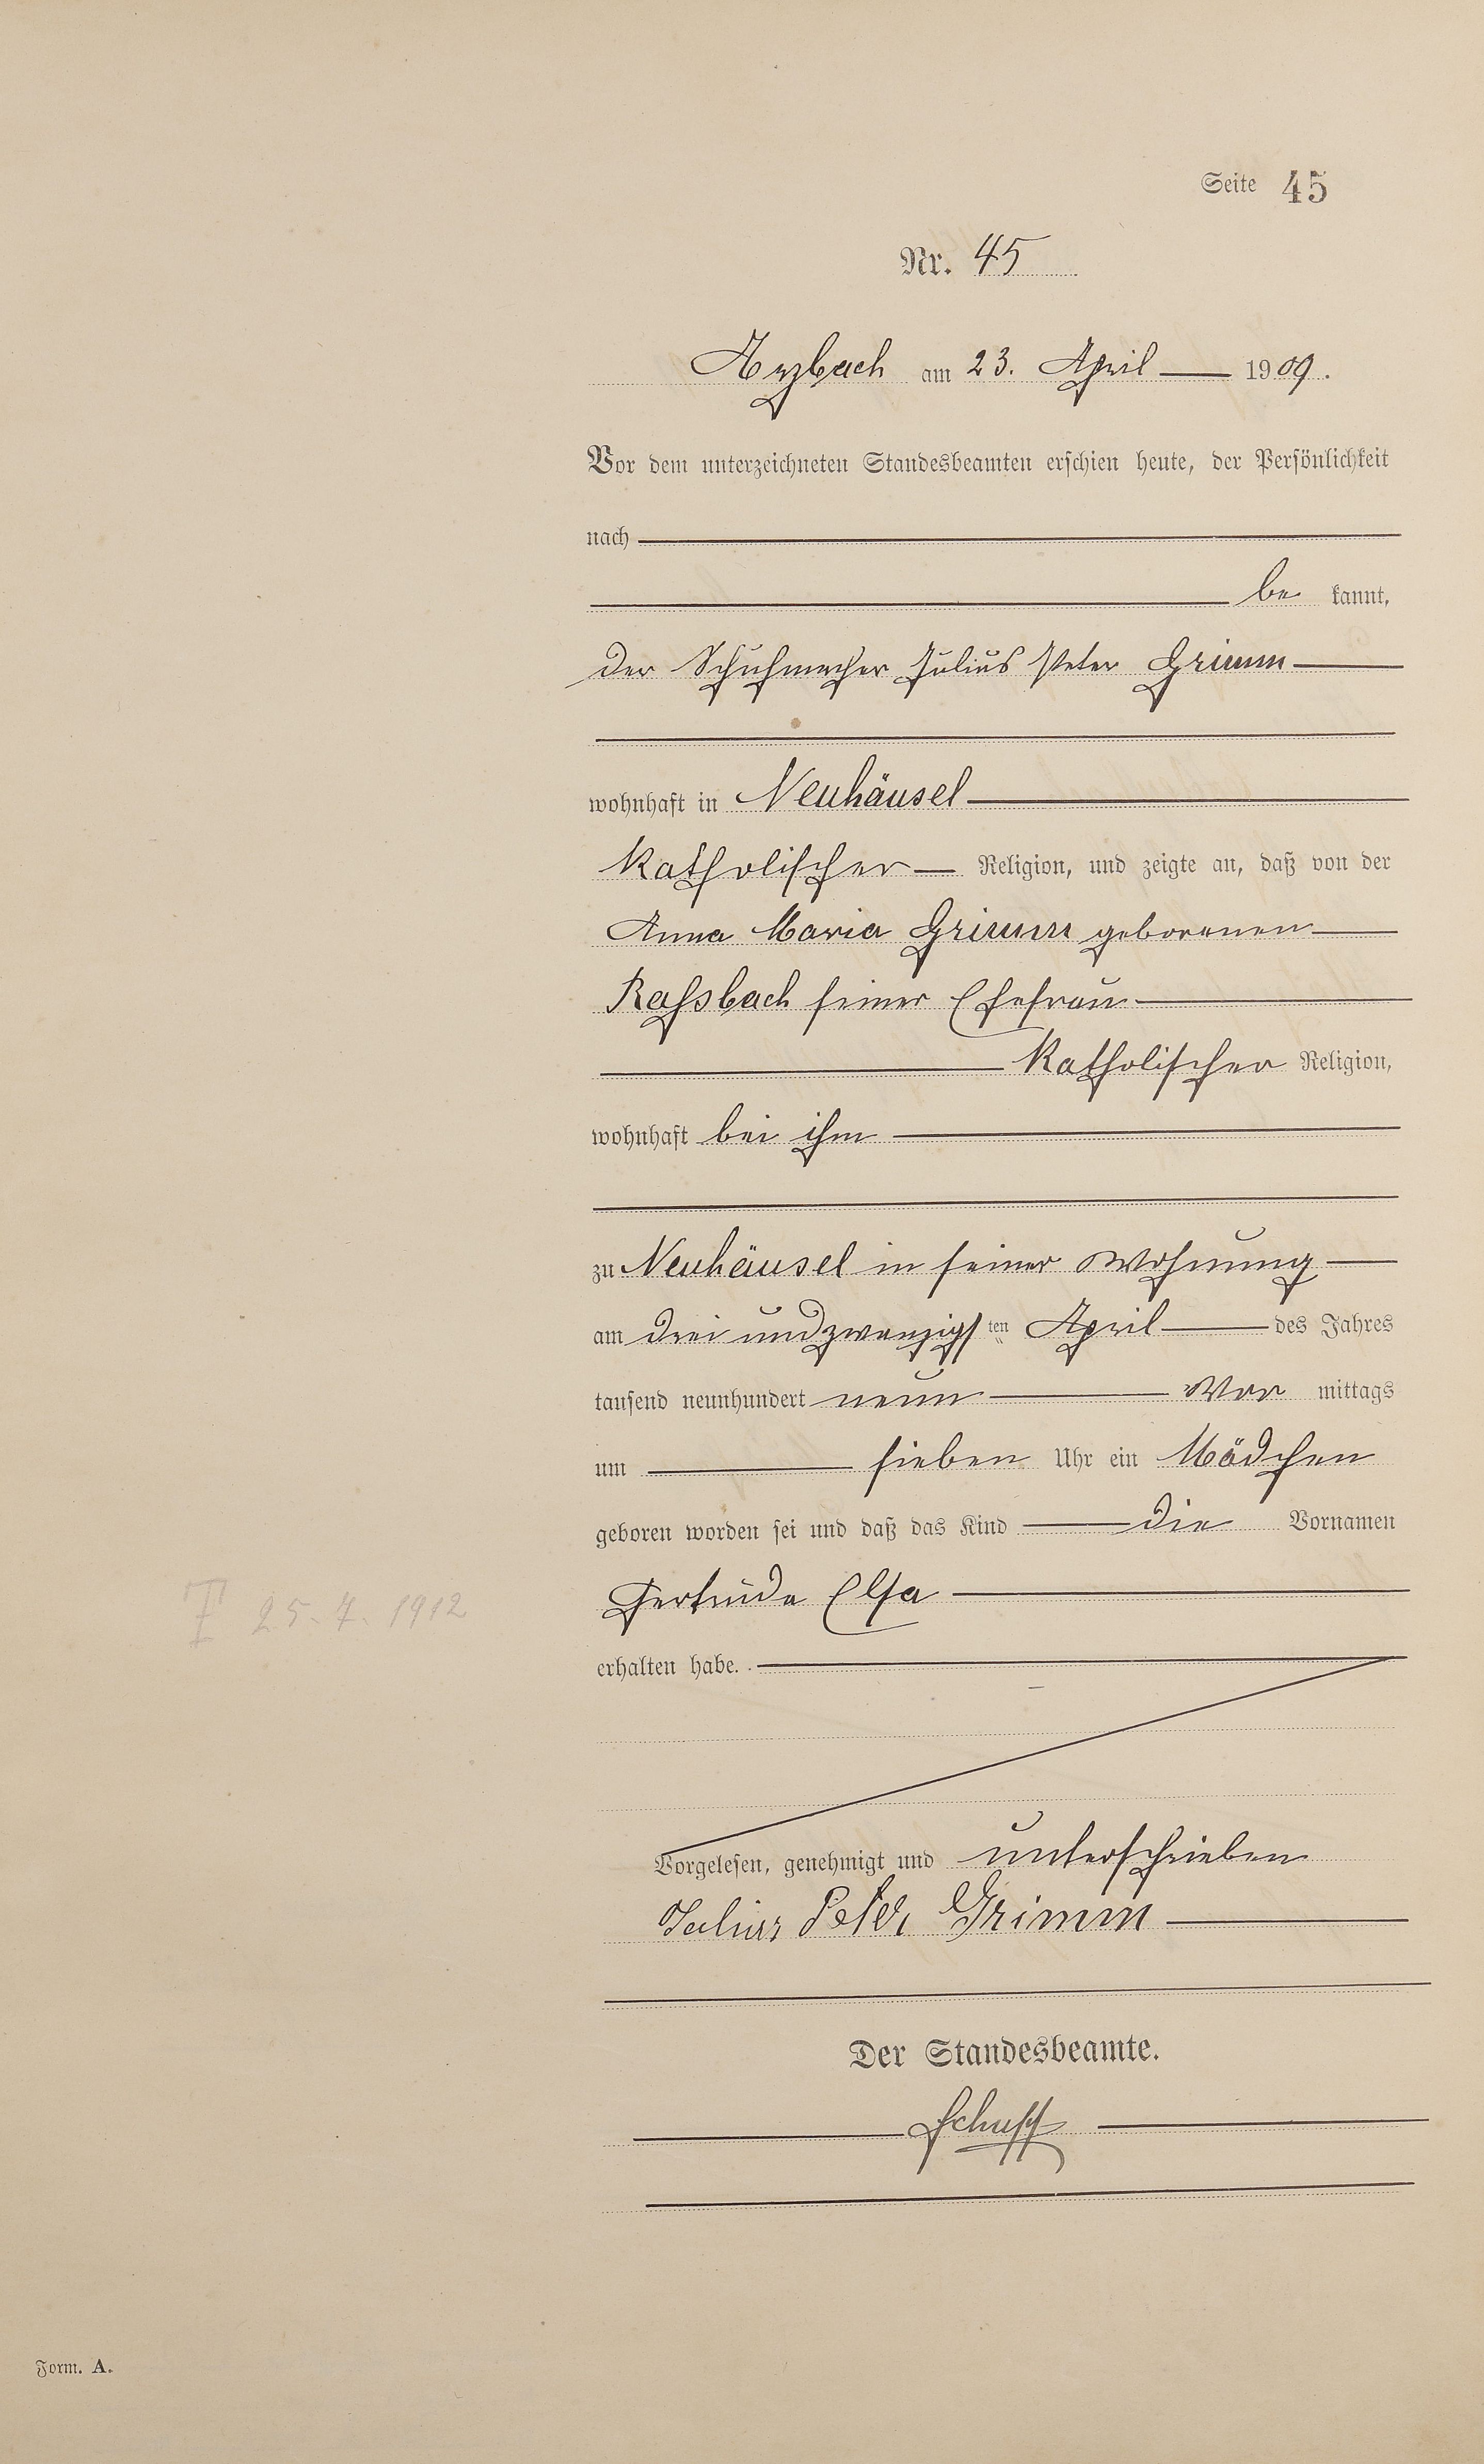 Seite 45
Nr. 45
Arzbach am 23. April 1909.
Vor dem unterzeichneten Standesbeamten erschien heute, der Persönlichkeit
nach
be kannt,
der Schuhmacher Julius Peter Grimm
wohnhaft in Neuhäusel
katholischer Religion, und zeigte an, daß von der
Anna Maria Grimm geborenen
Raßbach seiner Ehefrau
katholischer Religion,
wohnhaft bei ihm
zu Neuhäusel in seiner Wohnung
am drei und zwanzigs ten April des Jahres
tausend neunhundert neun Vor mittags
um sieben Uhr ein Mädchen
geboren worden sei und daß das Kind die Vornamen
Gertruda Elsa
† 25. 7. 1912
erhalten habe.
Vorgelesen, genehmigt und unterschrieben
Julius Peter Grimm
Der Standesbeamte.
Schupp
Form. A.